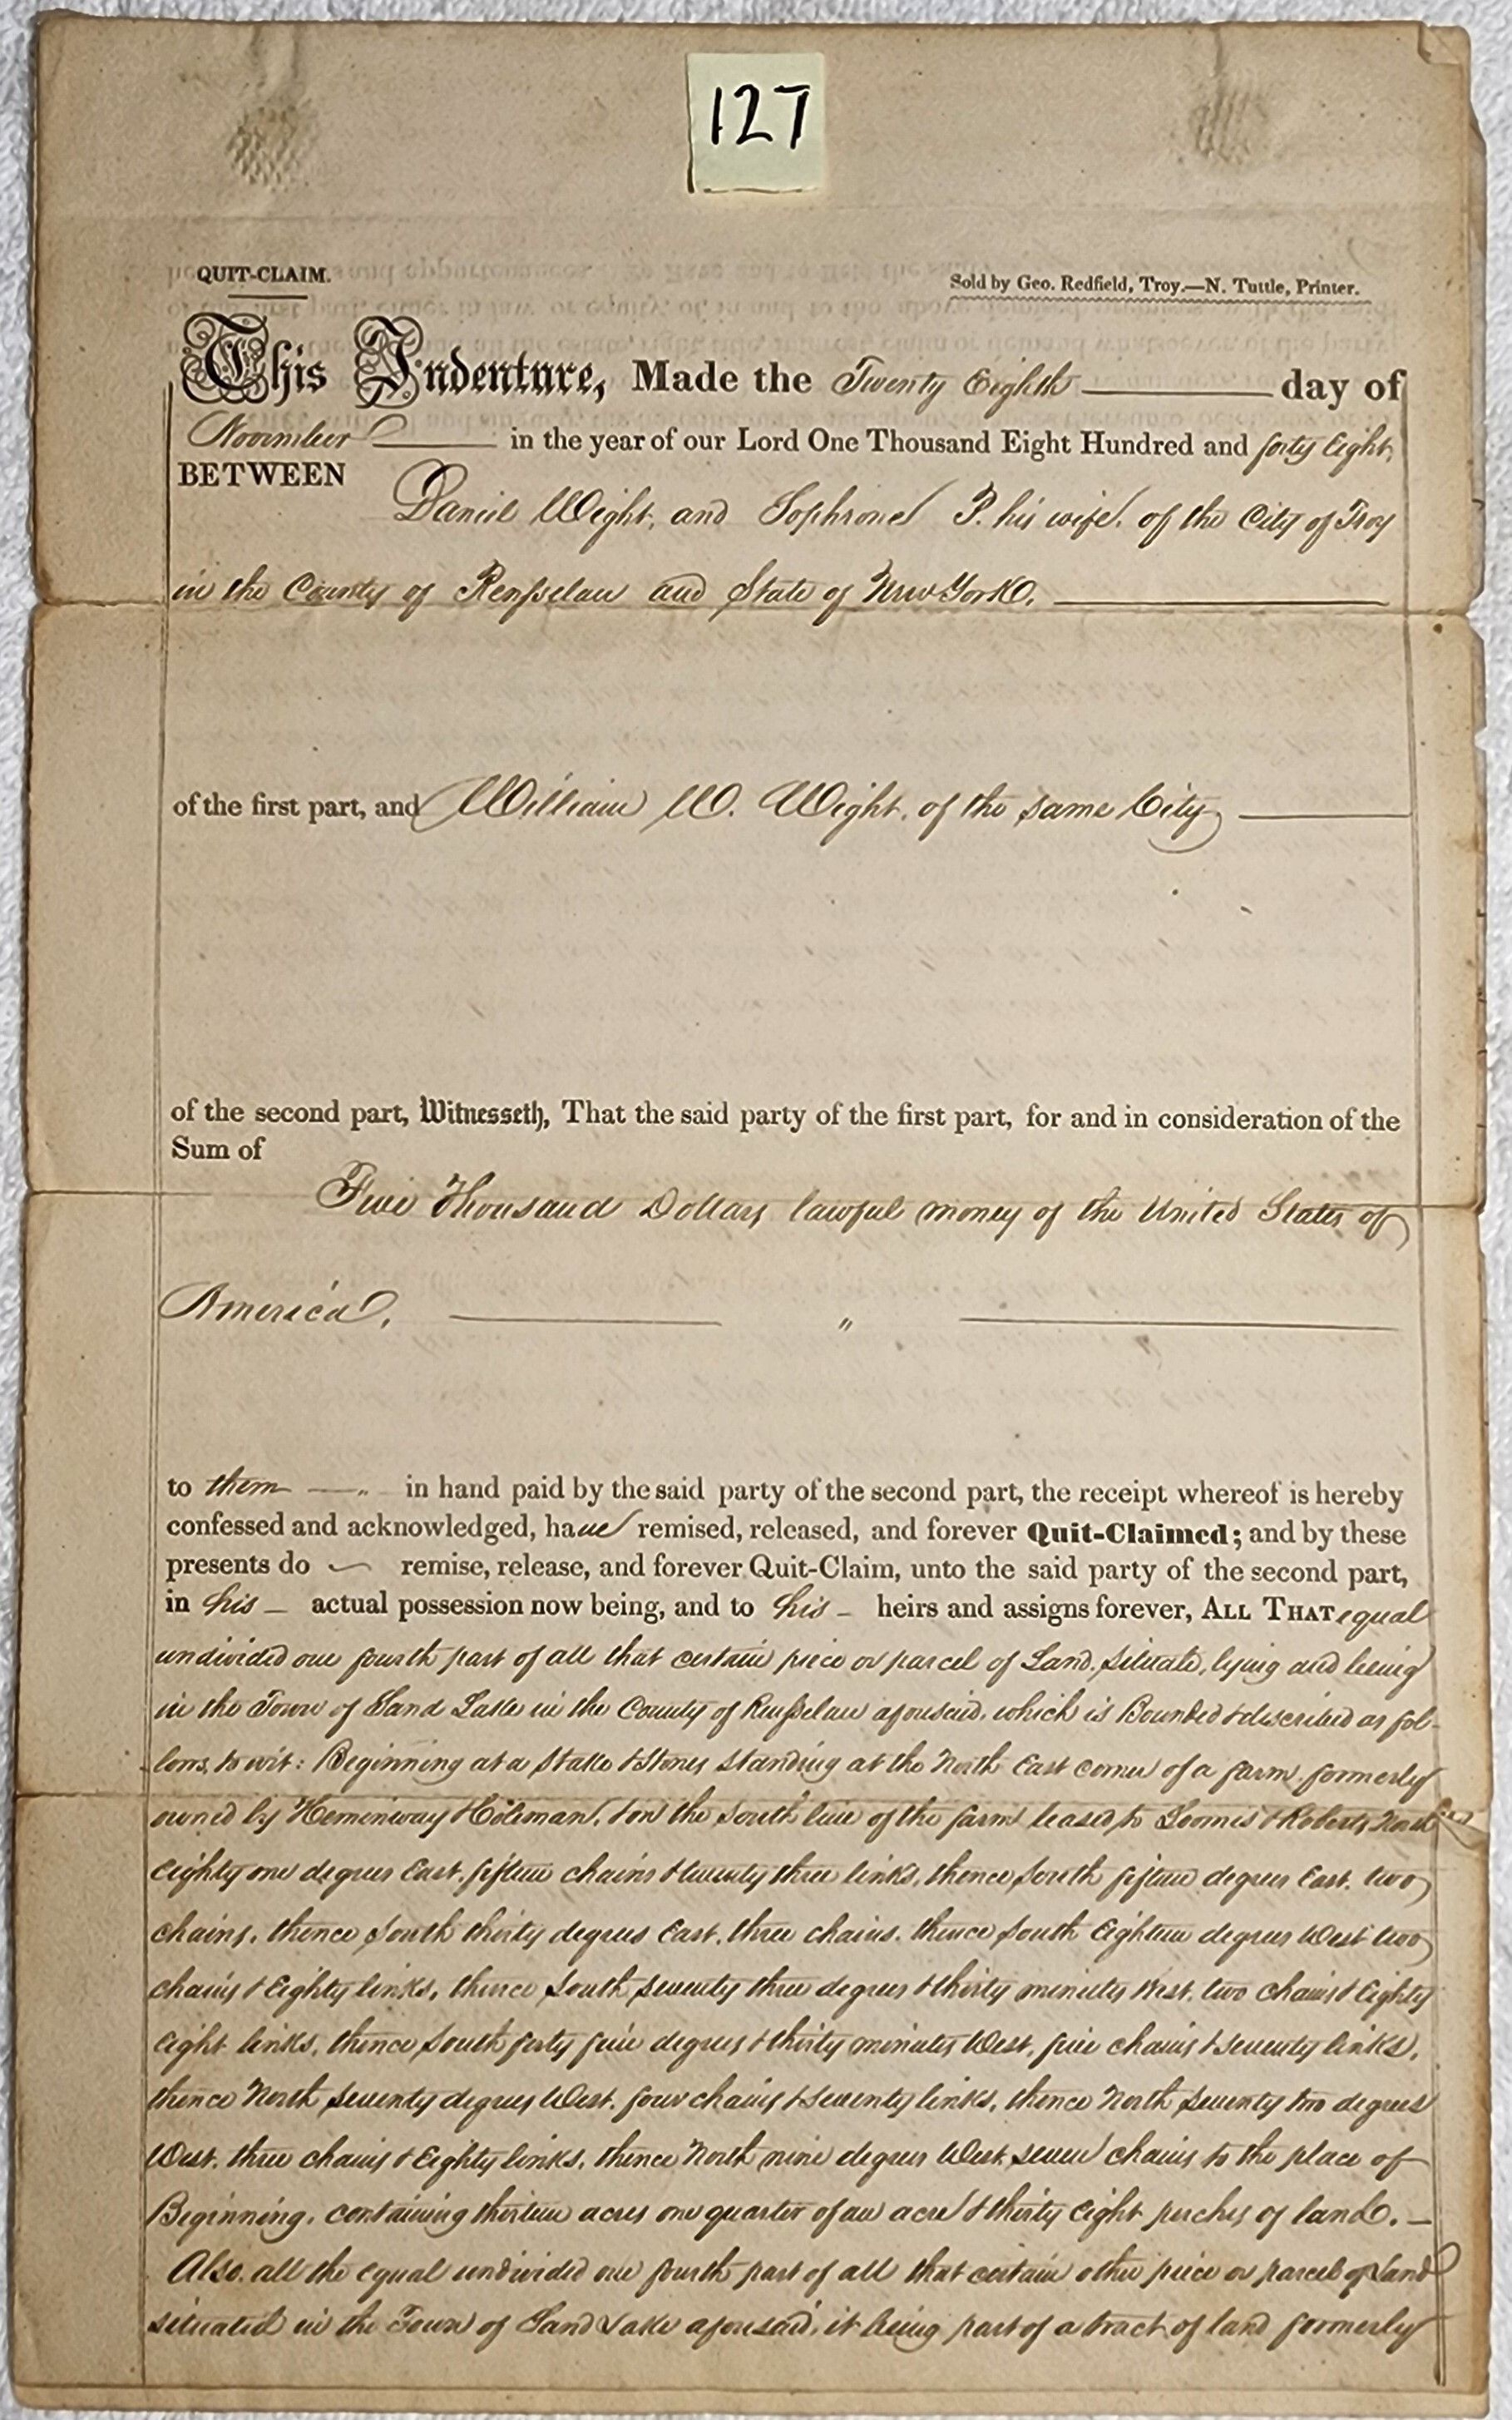 127
QUIT-CLAIM.
Sold by Geo. Redfield, Troy.—N. Tuttle, Printer.
This Indenture, Made the Twenty Eighth day of
November in the year of our Lord One Thousand Eight Hundred and forty Eight,
BETWEEN
Daniel Wight, and Sophrone P. his wife, of the City of Troy
in the County of Rensselaer and State of New York.
of the first part, and William W. Wight, of the same City
of the second part, Witnesseth, That the said party of the first part, for and in consideration of the
Sum of
Five Thousand Dollars lawful money of the United States of
America, "
to them " in hand paid by the said party of the second part, the receipt whereof is hereby
confessed and acknowledged, have remised, released, and forever Quit-Claimed; and by these
presents do remise, release, and forever Quit-Claim, unto the said party of the second part,
in his actual possession now being, and to his heirs and assigns forever, ALL THAT equal
undivided one fourth part of all that certain piece or parcel of Land, situate, lying and being
in the Town of Sand Lake in the County of Rensselaer aforesaid, which is Bounded & described as fol-
lows, to wit: Beginning at a Stake & Stones standing at the North East corner of a farm formerly
owned by Hemenway & Coleman, & on the South line of the farm leased to Loomis & Roberts, North
Eighty one degrees East, fifteen chains & twenty three links, thence South fifteen degrees East, two
chains, thence South thirty degrees East, three chains, thence South Eighteen degrees West two
chains & Eighty links, thence South seventy three degrees & thirty minutes West, two chains & Eighty
Eight links, thence South forty five degrees & thirty minutes West, five chains & seventy links,
thence North seventy degrees West, four chains & seventy links, thence North seventy two degrees
West, three chains & Eighty links, thence North nine degrees West, seven chains to the place of
Beginning, containing thirteen acres one quarter of an acre & thirty Eight perches of land.
Also, all the equal undivided one fourth part of all that certain other piece or parcel of Land
situated in the Town of Sand Lake aforesaid, it being part of a tract of land formerly